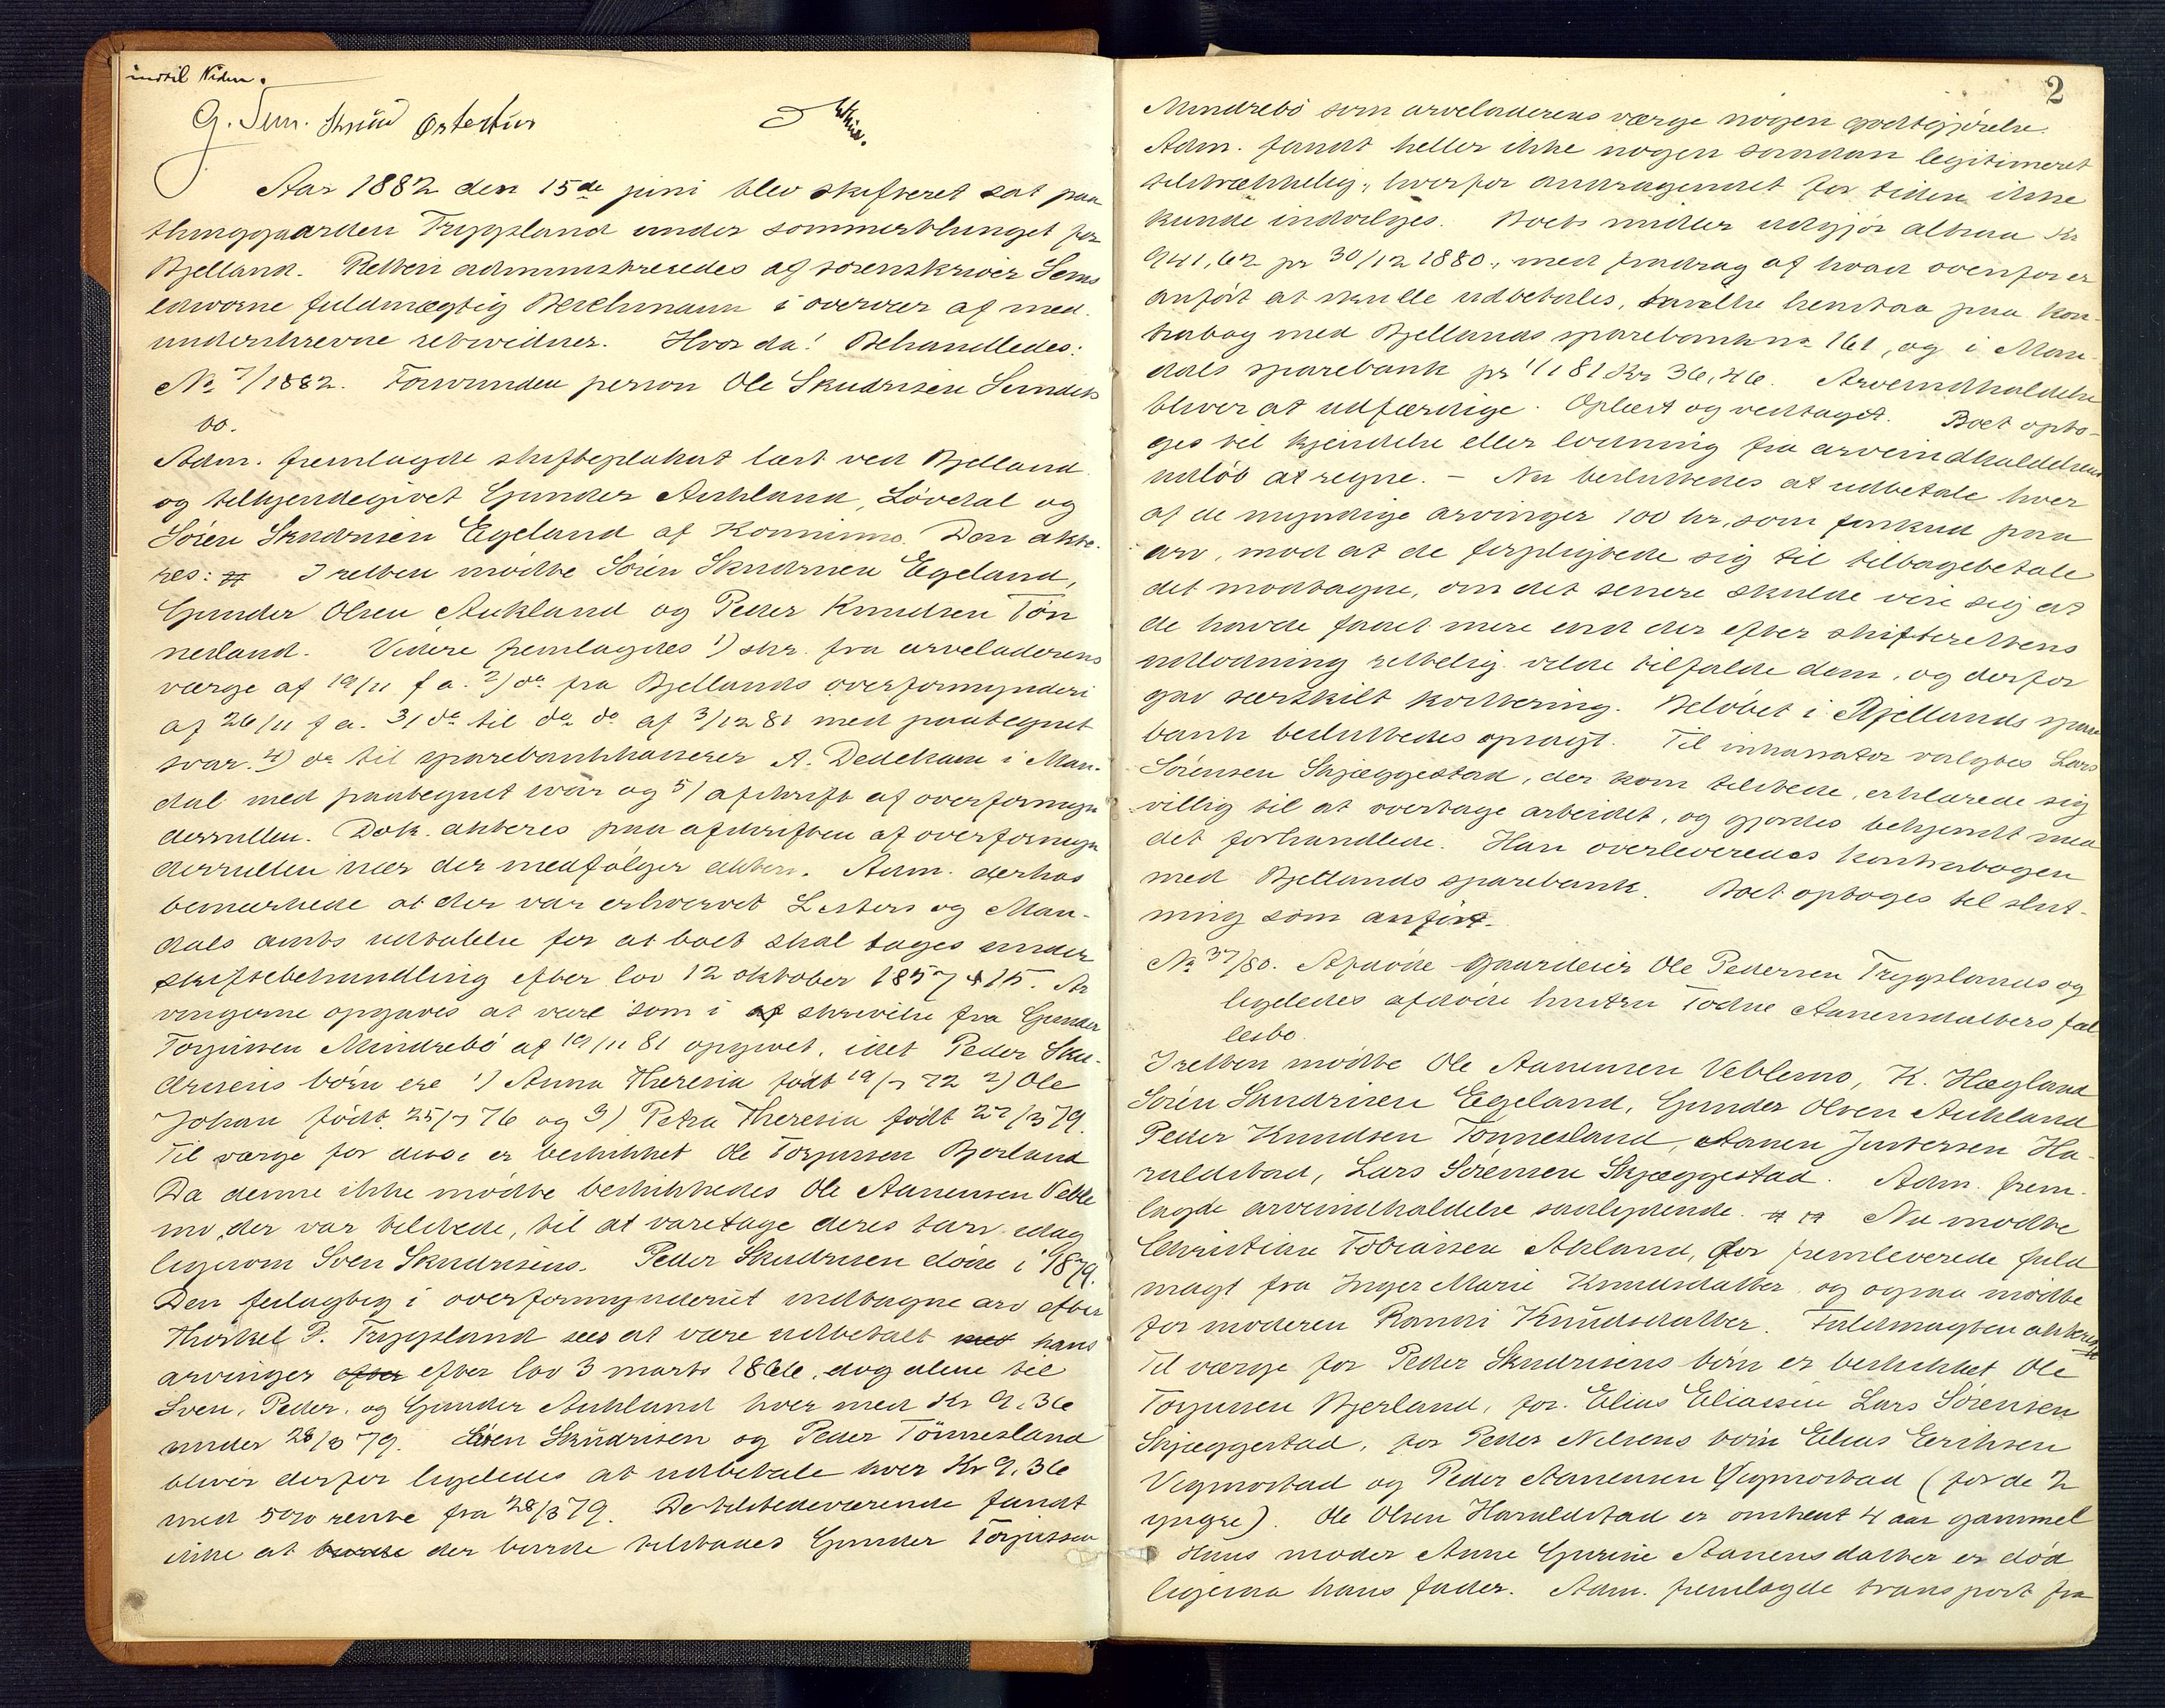 indtil Viden.
G. Sem. Østerhus
Aar 1882 den 15de juni blev skifteret sat paa
thinggaarden Trygsland under sommerthinget for
Bjelland. Retten administreredes af sorenskriver Sems
edsvorne fuldmægtig Berchmann i overvær af med
underskrevne retsvidner. Hvor da! Behandledes:
No 7/1882. Forsvunden person Ole Skudrisen Sundets
bo.
Adm. fremlagde skifteplakat læst ved Bjelland
og tilkjendegivet Gunder Aukland, Løvdal og
Sören Skudrisen Egeland af Konnismo. Den akte-
res: # I retten mödte Sören Skudrisen Egeland,
Gunder Olsen Aukland og Peder Knudsen Tön
nesland. Videre fremlagdes 1) skr. fra arveladerens
værge af 19/11 f a. 2) do fra Bjellands overformynderi
af 26/11 f a. 3) do til do do af 3/12 81 med paategnet
svar. 4) do til sparebankkasserer A. Dedekam i Man-
dal med paategnet svar og 5) afskrift af overformyn
derrullen. Dok. akteres paa afskriften af overformyn
derrullen nær der medfölger akten. Adm. derhos
bemærkede at der var erhvervet Lister og Man-
dals amts udtalelse for at boet skal tages under
skiftebehandling efter lov 12 oktober 1857 § 15. Ar
vingerne opgaves at være som i skrivelse fra Gunder
Torjussen Mindrebö af 19/11 81 opgivet, idet Peder Sku-
drisens börn ere 1) Anna Theresia födt 19/7 72 2) Ole
Johan födt 25/7 76 og 3) Petra Theresia födt 27/3 79.
Til værge for disse er beskikket Ole Torjussen Bjerland
Da denne ikke mödte beskikkedes Ole Aanensen Veble
mo, der var tilstede, til at varetage deres tarv idag
ligesom Sven Skudrisens. Peder Skudrisen döde i 1879.
Den feilagtig i overformynderiet indtagne arv efter
Thorkel P. Trygsland sees at være udbetalt med hans
arvinger efter efter lov 3 marts 1866, dog alene til
Sven, Peder, og Gunder Aukland hver med Kr 9.36
under 28/3 79. Sören Skudrisen og Peder Tönnesland
bliver derfor ligeledes at udbetale hver Kr 9.36
med 5% rente fra 28/3 79. De tilstedeværende fandt
ikke at burde der burde tilstaaes Gunder Torjussen
2
Mindrebö som arveladerens værge nogen godtgjörelse.
Adm. fandt heller ikke nogen saadan legitimeret
tilstrækkelig, hvorfor andragendet for tiden ikke
kunde indvilges. Boets midler udgjör altsaa Kr
941,62 pr 30/12 1880, med fradrag af hvad ovenfor er
anfört at skulle udbetales, hvilke henstaa paa kon-
trabog med Bjellands sparebank no 161, og i Man-
dals sparebank pr 1/1 81 Kr 36,46. Arveindkaldelse
bliver at udfærdige. Oplæst og vedtaget. Boet opto-
ges til kjendelse eller lodning fra arveindkaldelsens
udlöb at regne. - Nu besluttedes at udbetale hver
af de myndige arvinger 100 kr, som forskud paa
arv, mod at de forpligtede sig til tilbagebetale
det modtagne, om det senere skulde vise sig at
de havde faaet mere end der efter skifterettens
udlodning rettelig vilde tilfalde dem, og derfor
gav særskilt kvittering. Belöbet i Bjellands spare
bank besluttedes opsagt. Til inkassator valgtes Lars
Sörensen Skjæggestad, der kom tilstede, erklærede sig
villig til at overtage arbeidet, og gjordes bekjendt med
det forhandlede. Han overleveredes kontrabogen
med Bjellands sparebank. Boet optoges til slut-
ning som anfört.
No 37/80. Afdöde gaardeier Ole Pedersen Trygslands og
ligeledes afdöde hustru Todne Aanensdatters fæl
lesbo.
I retten mödte Ole Aanensen Veblemo, K. Hægland
Sören Skudrisen Egeland, Gunder Olsen Aukland
Peder Knudsen Tönnesland, Aanen Justersen Ha-
raldstad, Lars Sörensen Skjæggestad. Adm. frem-
lagde arveindkaldelse saalydende. # # Nu mödte
Christian Tobiassen Akland, for fremleverede fuld
magt fra Inger Marie Knudsdatter og ogsaa mödte
for moderen Ranni Knudsdatter. Fuldmagten akteres
Til værge for Peder Skudrisens börn er beskikket Ole
Torjussen Bjerland, for Elias Eliassen Lars Sörensen
Skjæggestad, for Peder Nilsens börn Elias Erichsen
Vegmostad og Peder Aanensen Vegmostad (for de 2
yngre). Ole Olsen Haraldstad er omtrent 4 aar gammel
Hans moder Anne Gurine Aanensdatter er död
ligesaa hans fader. Adm. fremlagde transport fra